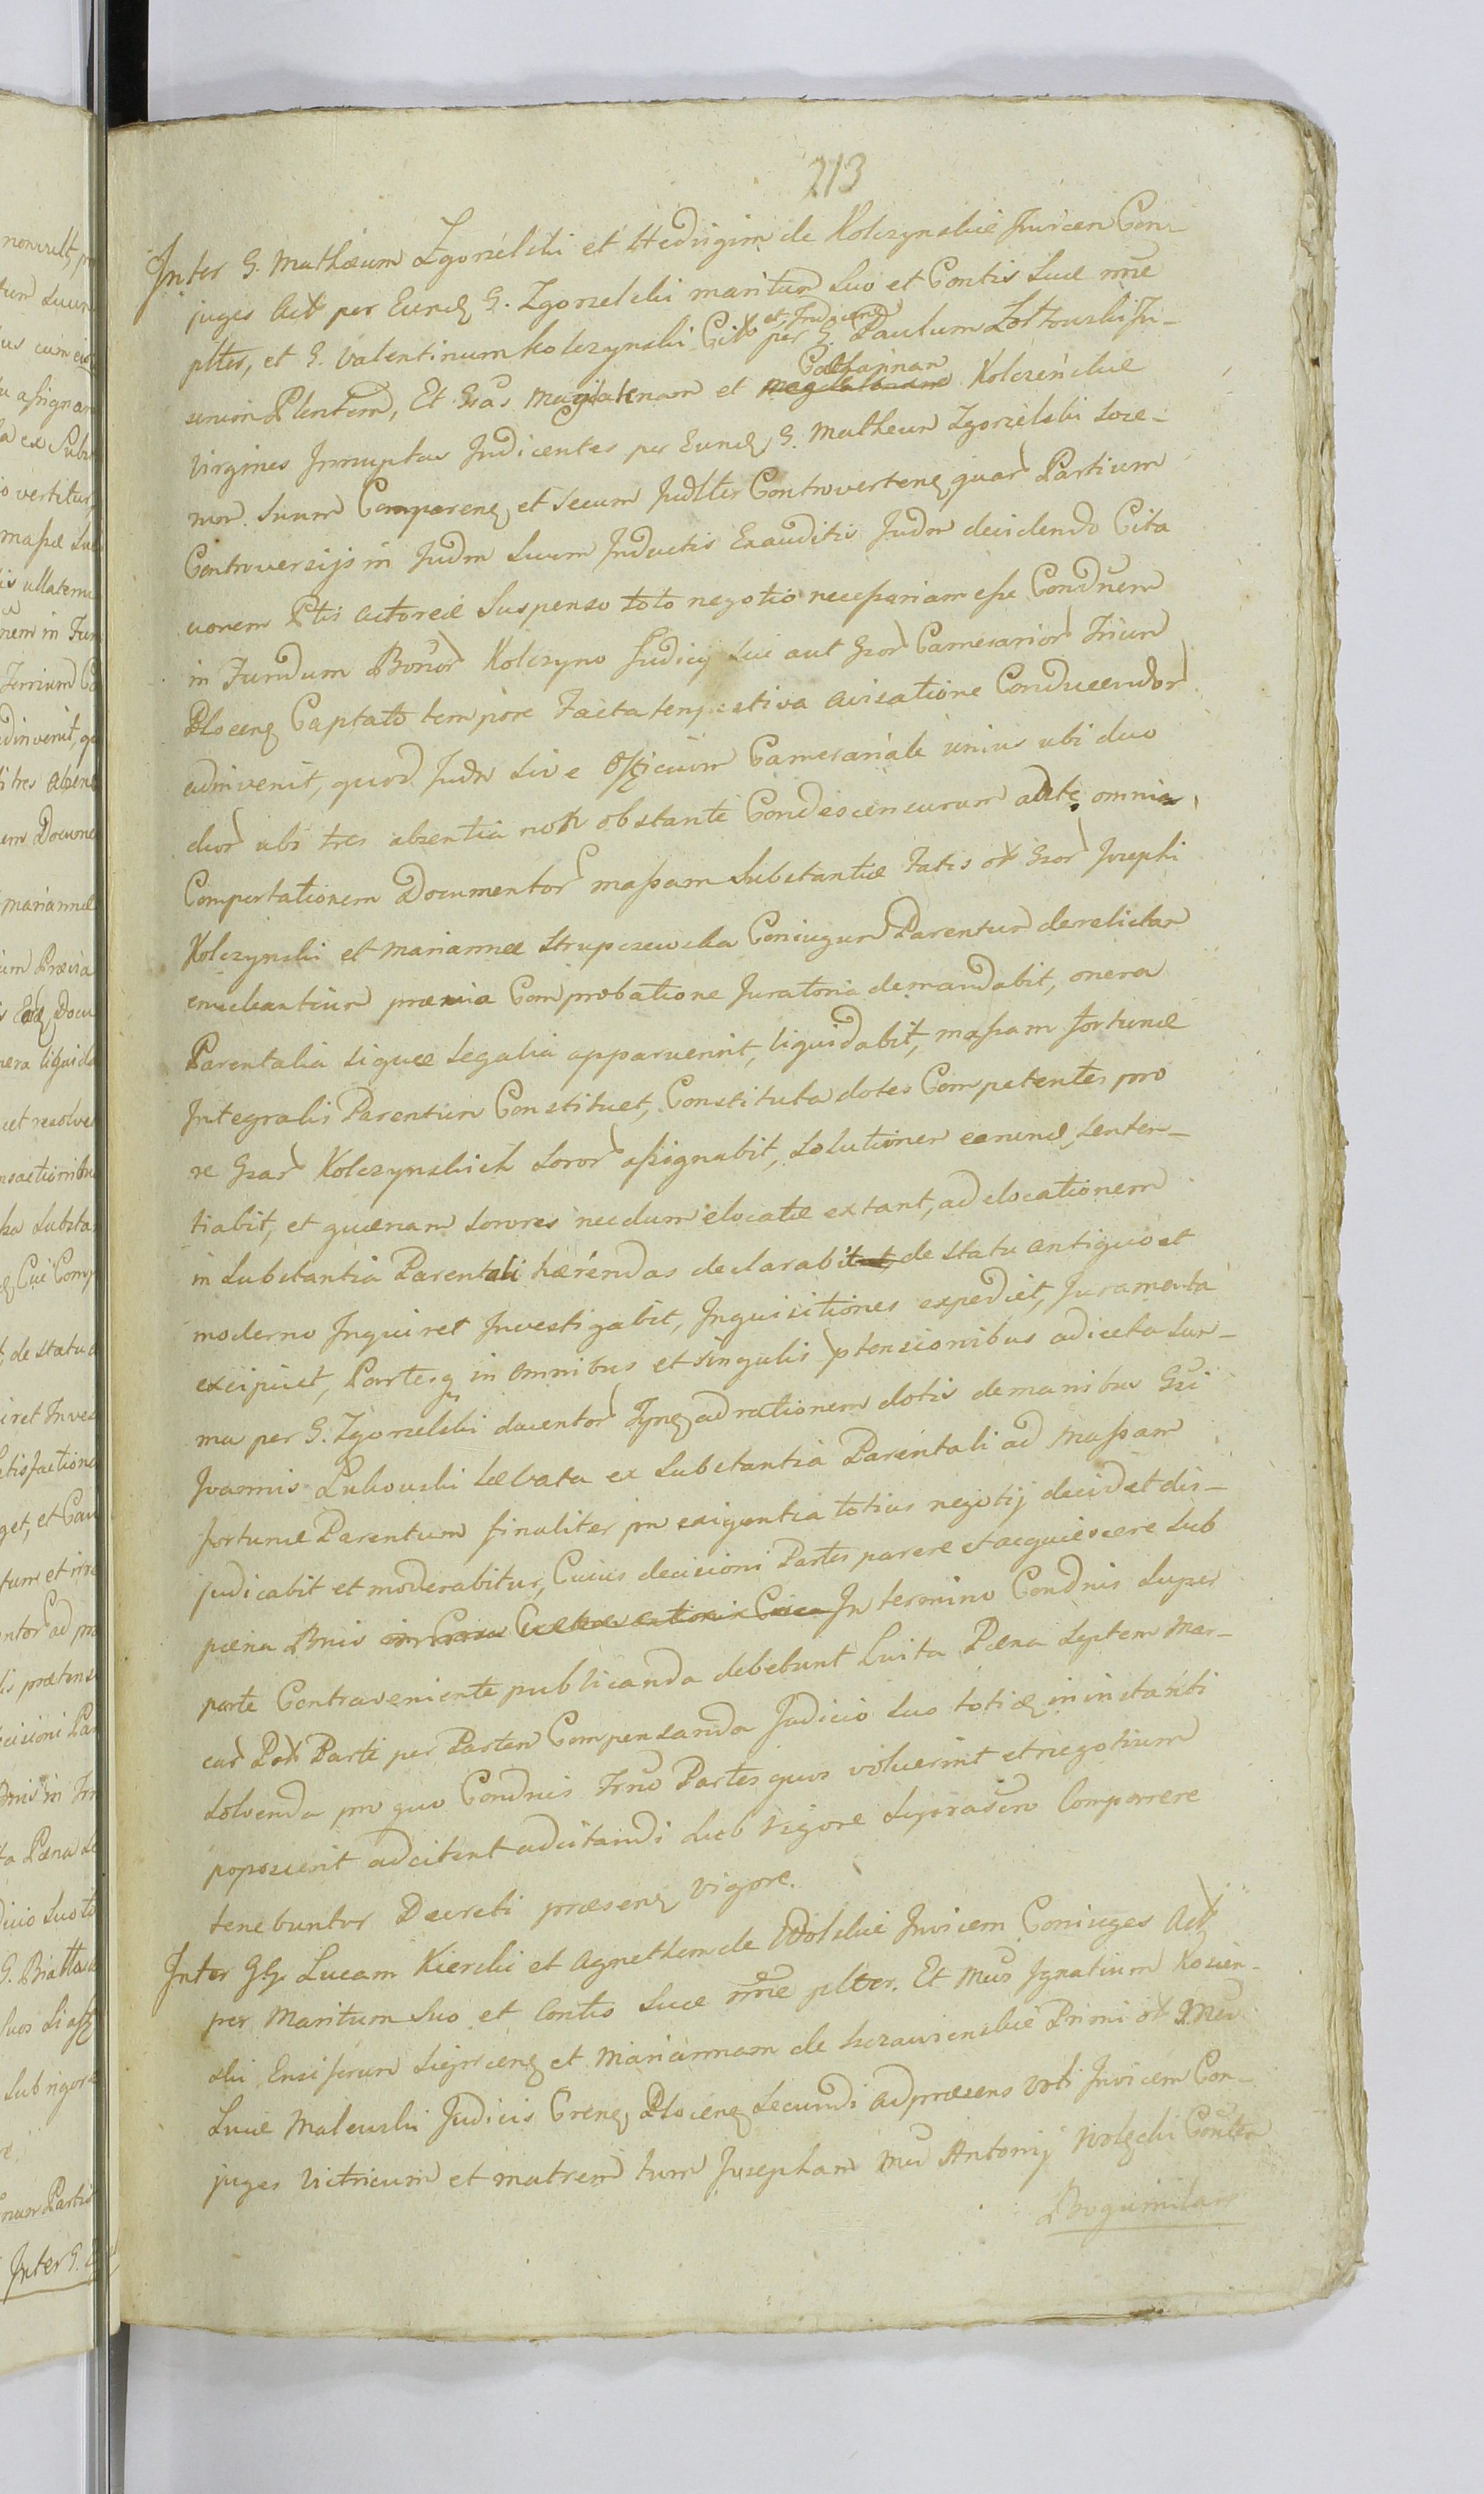 213
Inter G. Mathæum Zgorzelski et Hedvigim de Kolczynskie Invicem Con-
juges Act per Eund G. Zgorzelski maritum Suo et Contis Suæ nne
pltes, et G. Valentinum Kolczynski Cit et Judicens per G. Paulum Zottowski Ju-
seniori Plentem, Et Gsas Magdalenam et Catharinam Kolczenskie
Virgines Innuptas Judicentes per Eund G. Matheum Zgorzelski Soce-
rum Suum Comparenq et Secum Judlter Controvertenq quar Partium
Controversijs in Judm Suum Inductis Exauditis Judm decidendo Cita
uonem Ptis actoreæ Suspenso toto negotio necessariam esse Condnem
in Fundum Bonor Kolczyno Judicij Sui aut Gsor Camerarior Trium
Plocenq Captato tempore Facta tempestiva avisatione Conducendor
adinvenit, quod Judm Sive Officium Camerariale unius ubi duo
duor ubi tres absentia non obstante Condescensurum ante omnia
Comportationem Documentor massam Substantiæ Fatis ol Gsor Josephi
Kolczynski et Mariannæ Strupczewska Coniugum Parentum derelictar
enucleantium prævia Comprobatione Juratoria demandabit, onera
Parentalia siquæ legalia apparuerint, liquidabit, massam fortunæ
Integralis Parentum Constituet, Constituta dotes Competentes pro
re Gsar Kolczynskich Soror assignabit, Solutionem earund senten-
tiabit, et quænam Sorores necdum elocatæ extant, ad elocationem
in Substantia Parentali hærendas declarabit de Statu antiquo et
moderno Inquiret Investigabit, Inquisitiones expediet, Juramenta
excipiet, Partesq in omnibus et singulis ptensionibus adiecta Sum-
ma per G. Zgorzelski ducentor Tynq ad rationem dotis de manibus Gsi
Joannis Lukowski Lævata ex Substantia Parentali ad massam
fortunæ Parentum finaliter pn exigentia totius negotij decidet dis-
judicabit et moderabitur, Cuius decisioni Partes parere et acquiescere Sub
pæna Bnis In termino Condnis Super
parte Contraveniente publicanda debebunt Luita Pæna Septem Mar-
car Pol Parti per Partem Compensanda Judicio Suo totiæ in instanti
Solvenda pro quo Condnis Trno Partes quos voluerint et negotium
poposcerit adcitent adcitandi Sub rigore Comparere
tenebuntur Decreti præsenq vigore.
Inter GG. Lucam Kierski et Agnethem de Wolskie Invicem Coniuges Act
per Maritum Suo et Contis Suæ nne plter. Et Mcus Ignatium Kozien-
ski Ensiferum et Mariannam de Szrawienskie Primi ol Mci
Lucæ Malewski Judicis Crenq Plocenq Secundi ad præsens voti Invicem Con-
juges Victricum et matrem tum Josepham Mci Antonij Wolschi Conten
Bogumilam